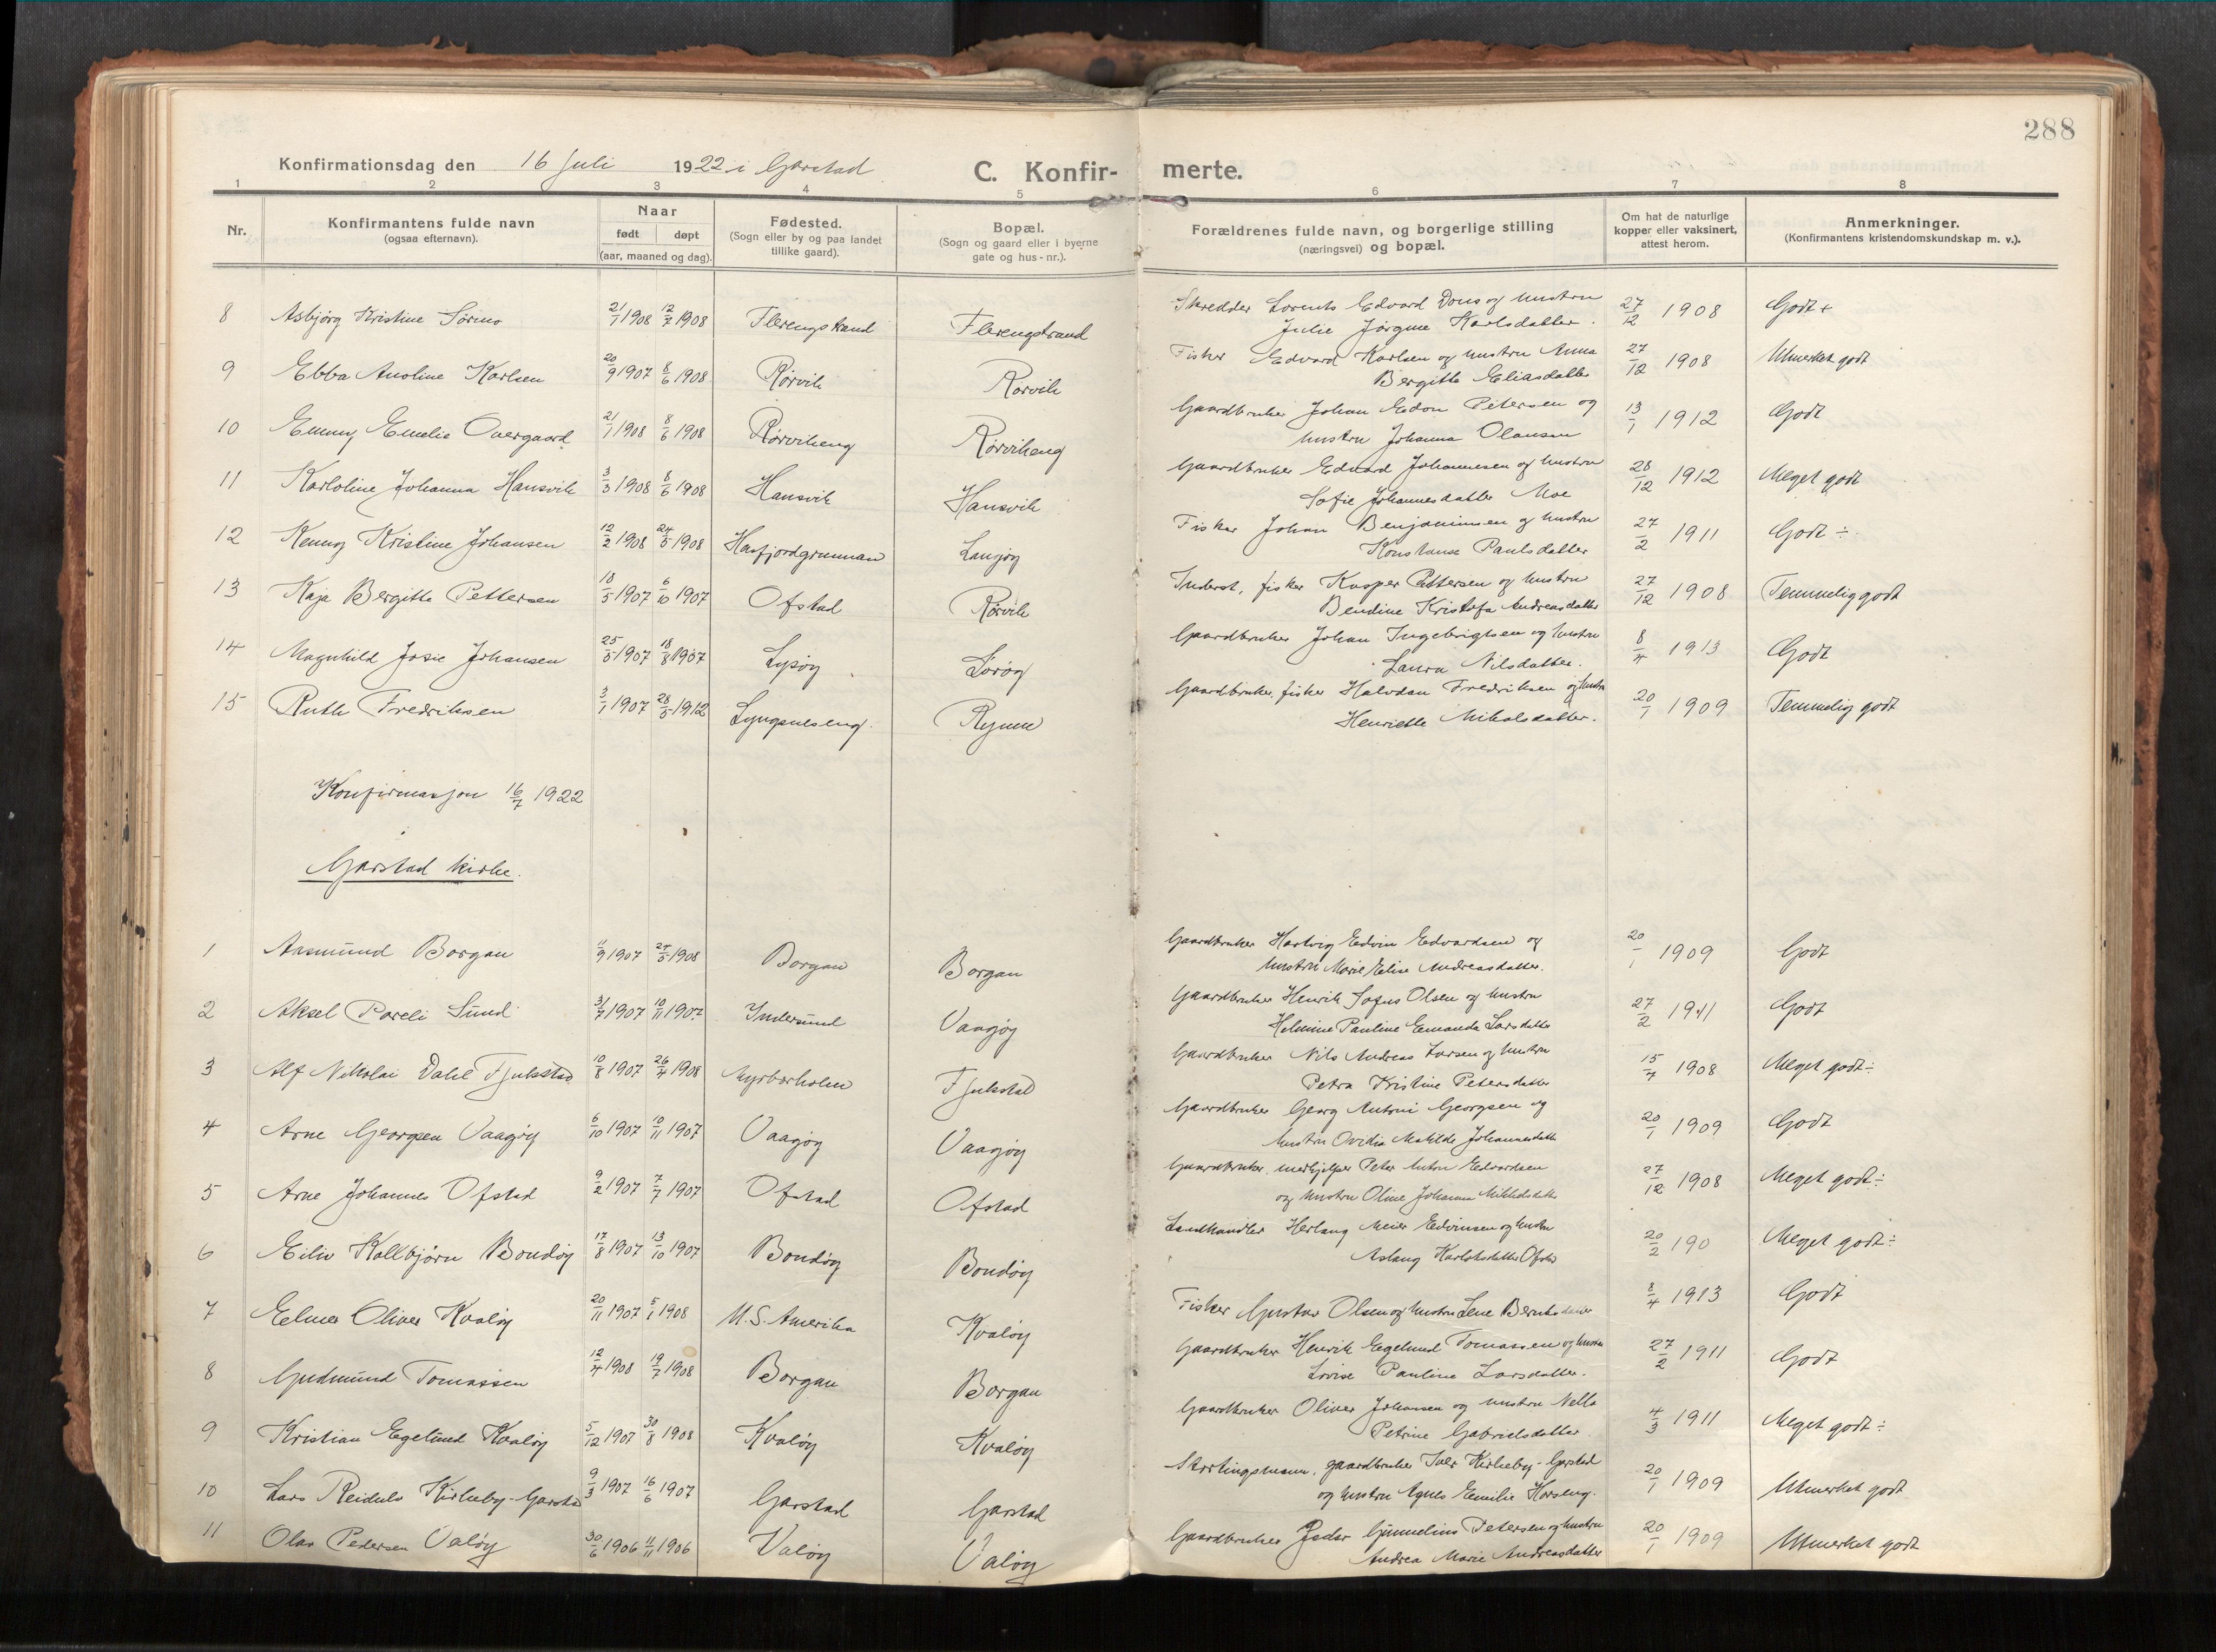 288
Konfirmationsdag den 16 juli 1922 i Garstad
C. Konfir- merte.
1 2 3 4 5 6 7 8
Nr.
Konfirmantens fulde navn
(ogsaa efternavn).
Naar
født døpt
(aar, maaned og dag).
Fødested.
(Sogn eller by og paa landet
tillike gaard).
Bopæl.
(Sogn og gaard eller i byerne
gate og hus-nr.).
Forældrenes fulde navn, og borgerlige stilling
(næringsvei) og bopæl.
Om hat de naturlige
kopper eller vaksinert,
attest herom.
Anmerkninger.
(Konfirmantens kristendomskundskap m. v.).
8 Asbjørg Kristine Sørmo 21/1 1908 12/7 1908 Flerengstrand Flerengstrand Skredder Lorents Edvard Dons og hustru 27/12 1908 Godt+
Julie Jørgine Karlsdatter.
9 Ebba Anoline Karlsen 20/9 1907 8/6 1908 Rørvik Rørvik Fisker Edvard Karlsen og hustru Anna 27/12 1908 Utmerket godt
Bergitte Eliasdatter
10 Emmy Emelie Overgaard 21/1 1908 8/6 1908 Rørvikeng Rørvikeng Gaardbruker Johan Edon Petersen og 13/1 1912 Godt
hustru Johanna Olausen
11 Karloline Johanna Hansvik 3/3 1908 8/6 1908 Hansvik Hansvik Gaardbruker Edvard Johannesen og hustru 28/12 1912 Meget godt
Sofie Johannesdatter Moe
12 Kenny Kristine Johansen 12/2 1908 24/5 1908 Havfjordgrunnan Langøy Fisker Johan Benjaminsen og hustru 27/2 1911 Godt ÷
Konstanse Paulsdatter
13 Kaja Bergitte Pettersen 18/5 1907 6/10 1907 Ofstad Rørvik Inderst, fisker Kasper Pettersen og hustru 27/12 1908 Temmelig godt
Bendine Kristofa Andreasdatter
14 Magnhild Josie Johansen 25/5 1907 18/8 1907 Lysøy Sørøy Gaardbruker Johan Ingebrigtsen og hustru 8/4 1913 Godt
Laura Nilsdatter.
15 Ruth Fredriksen 3/1 1907 28/5 1912 Lyngsneseng. Ryum Gaardbruker, fisker Halvdan Fredriksen og hustru 20/1 1909 Temmelig godt
Henriette Mikalsdatter.
Konfirmasjon 16/7 1922
Garstad kirke.
1 Aasmund Borgan 11/9 1907 24/5 1908 Borgan Borgan Gaardbruker Hartvig Edvin Edvardsen og 20/1 1909 Godt
hustru Marie Elise Andreasdatter.
2 Aksel Pareli Sund 31/7 1907 10/11 1907 Indersund Vaagøy Gaardbruker Henrik Sofus Olsen og hustru 27/2 1911 Godt
Helmine Pauline Emanda Larsdatter
3 Alf Nikolai Dahl Fjukstad 10/8 1907 26/4 1908 Myrbærholm Fjukstad Gaardbruker Nils Andreas Larsen og hustru 15/7 1908 Meget godt÷
Petra Kristine Petersdatter
4 Arne Georgsen Vaagøy 6/10 1907 10/11 1907 Vaagøy Vaagøy Gaardbruker Georg Antoni Georgsen og 20/1 1909 Godt
hustru Ovidia Matilde Johannesdatter
5 Arne Johannes Ofstad 9/2 1907 7/7 1907 Ofstad Ofstad Gaardbruker, medhjelper Peter Anton Edvardsen 27/12 1908 Meget godt÷
og hustru Oline Johanna Mikkelsdatter
6 Eiliv Kollbjørn Bondøy 17/8 1907 13/10 1907 Bondøy Bondøy Landhandler Herlaug Meier Edvinsen og hustru 20/2 190 Meget godt÷
Aslaug Karlotsdatter Ofstad
7 Eelmer Oliver Kvaløy 20/11 1907 5/1 1908 U. S. Amerika Kvaløy Fisker Gustav Olsen og hustru Lene Berntsdatter 8/4 1913 Godt
8 Gudmund Tomassen 12/4 1908 19/7 1908 Borgan Borgan Gaardbruker Henrik Egelund Tomassen og hustru 27/2 1911 Godt
Lovise Pauline Larsdatter.
9 Kristian Egelund Kvaløy 5/12 1907 30/8 1908 Kvaløy Kvaløy Gaardbruker Oliver Johansen og hustru Nella 4/3 1911 Meget godt÷
Petrine Gabrielsdatter.
10 Lars Reidulv Kirkeby-Garstad 9/3 1907 16/6 1907 Garstad Garstad Stortingsmann, gaardbruker Iver Kirkeby-Garstad 20/1 1909 Utmerket godt
og hustru Agnes Emilie Horseng.
11 Olav Pedersen Valøy 30/6 1906 11/11 1906 Valøy Valøy Gaardbruker Peder Gunnelius Petersen og hustru 20/1 1909 Utmerket godt
Andrea Marie Andreasdatter